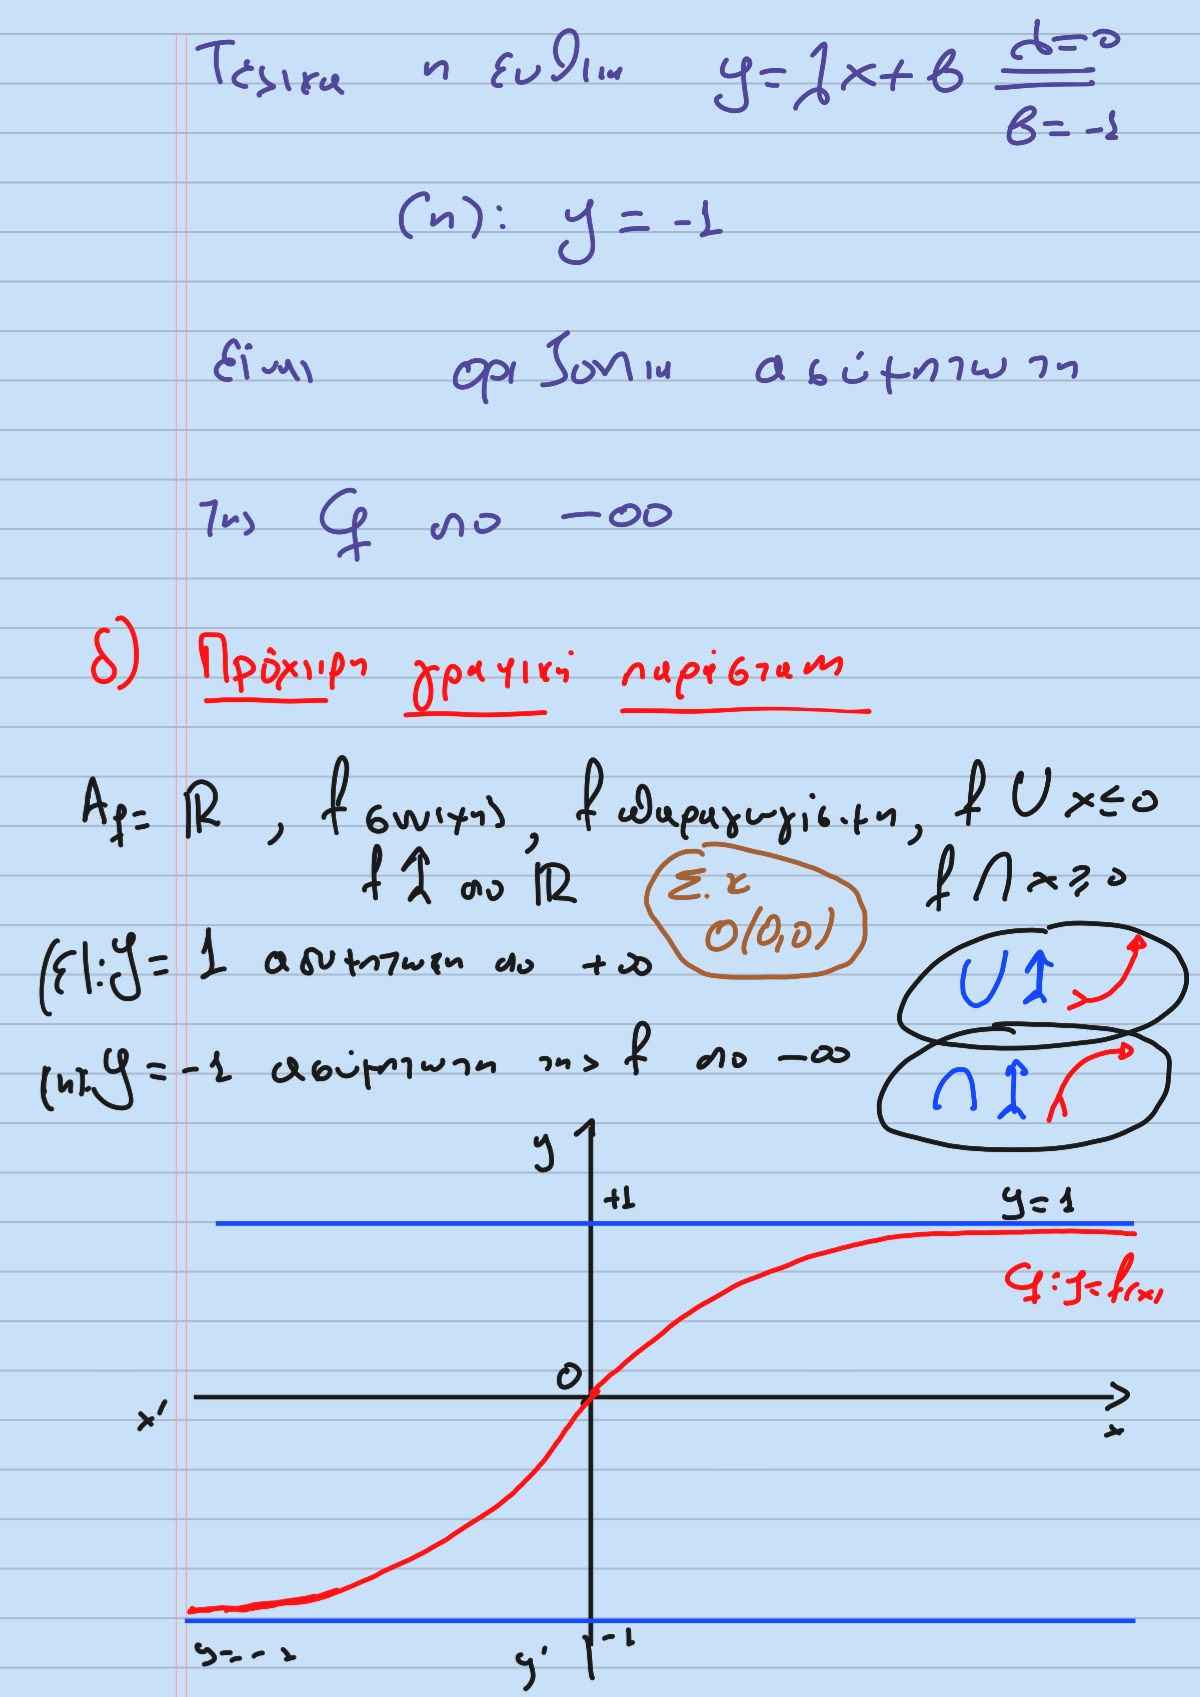 Τελικα η ευθεια y = λx + β  λ = 0
β = -1
(η): y = -1
Είναι οριζοντια ασύμπτωτη
της Cf στο -∞
δ) Πρόχειρη γραφική παράσταση
Af = ℝ , f συνεχης, f παραγωγίσιμη, f ∪ x ≤ 0
f ↑ στο ℝ  Σ.κ  f ∩ x ≥ 0
O(0,0)
(ε): y = 1 ασυμπτωτη στο +∞  ∪ ↑
(η): y = -1 ασύμπτωτη της f στο -∞  ∩ ↑
y
+1  y = 1
Cf : y = f(x)
O
x'  x
y = -1  y'  -1